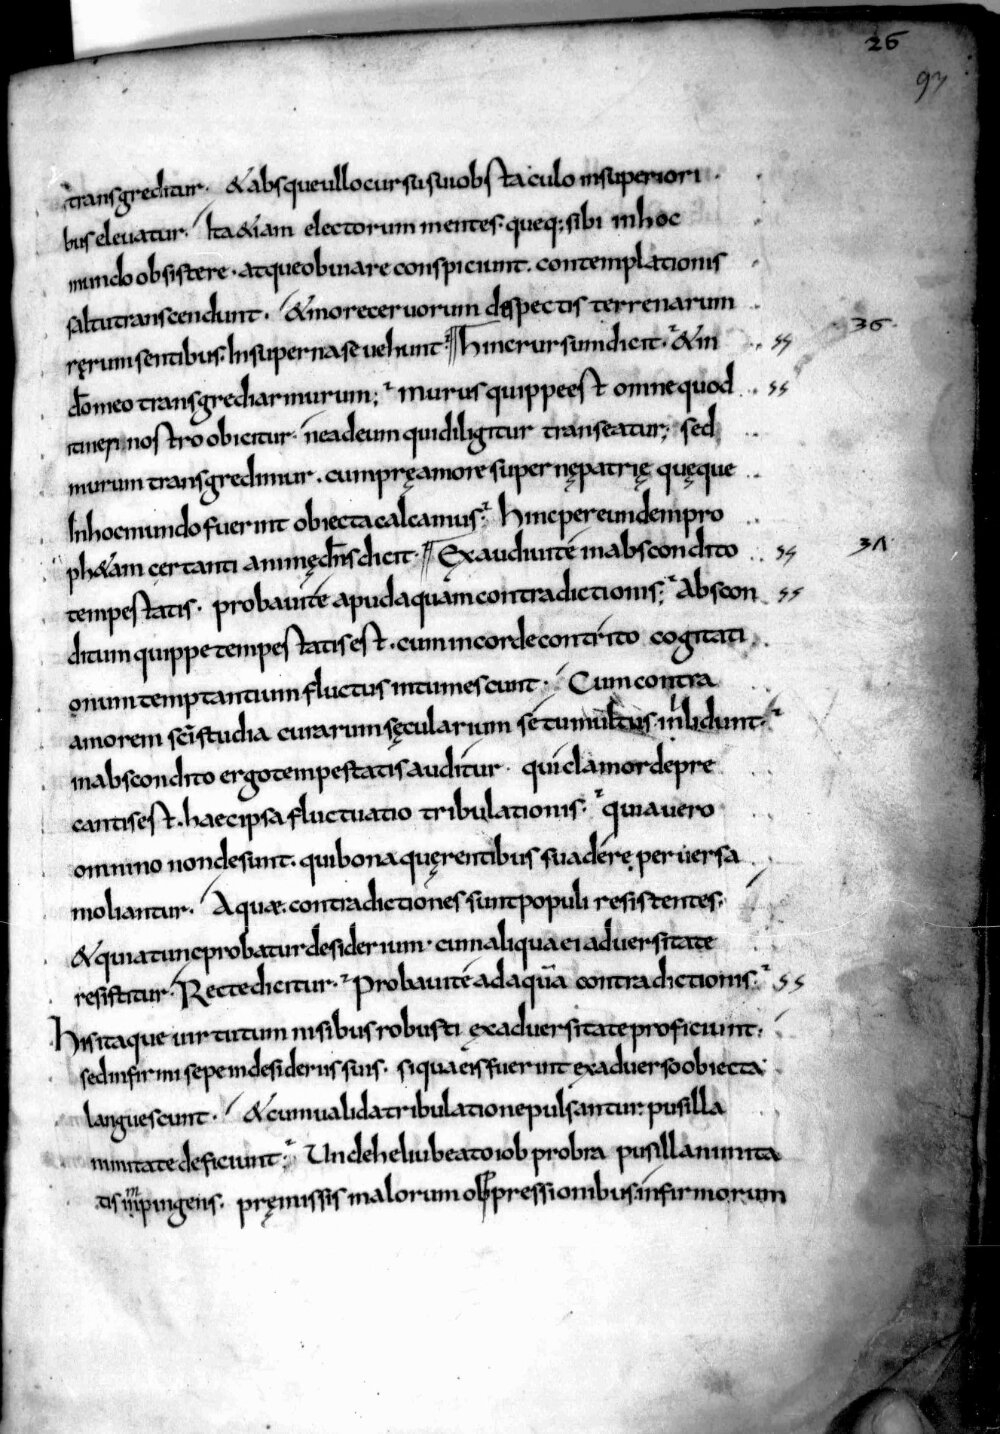 26
97
transgreditur· & absque ullo cursu sui obstaculo insuperiori
bus elevatur· Ita &iam electorum mentes· queq; sibi inhoc
mundo obsistere· atque obviare conspiciunt· contemplationis
saltu transcendunt· & more cervorum despectis terrenarum
rerum sentibus· Insuperna se vehunt· Hinc rursum dicit· & in
36
do meo transgrediar murum; Murus quippe est omne quod
itineri nostro obicitur· ne adeum qui diligitur transeatur; sed
murum transgredimur· cum prę amore supernę patrię quęque
Inhoc mundo fuerint obiecta calcamus; Hinc per eundem pro
ph&am certanti animę dn̄s dicit· Exaudivi te in abscondito
37
tempestatis· probavi te apud aquam contradictionis; Abscon
ditum quippe tempestatis est· cum in corde contrito cogitati
onum temptantium fluctus intumescunt· Cum contra
amorem sc̄i studia curarum sęcularium se tumultus inlidunt·
in abscondito ergo tempestatis auditur· qui clamor depre
cantis est· haec ipsa fluctuatio tribulationis· quia vero
omnino non desunt· qui bona quęrentibus suadere perversa
moliantur· Aquæ contradictiones sunt populi resistentes·
& quia tunc probatur desiderium· cum aliqua ei adversitate
resistitur· Recte dicitur· Probavi te ad aquā contradictionis·
His itaque virtutum nisibus robusti ex adversitate proficiunt·
sed infirmi sepe in desideriis suis· si qua eis fuerint ex adverso obiecta
languescunt· & cum valida tribulatione pulsantur· pusilla
nimitate deficiunt· Unde heliu beato iob probra pusillanimita
tis inpingens· pręmissis malorum obpressionibus infirmorum